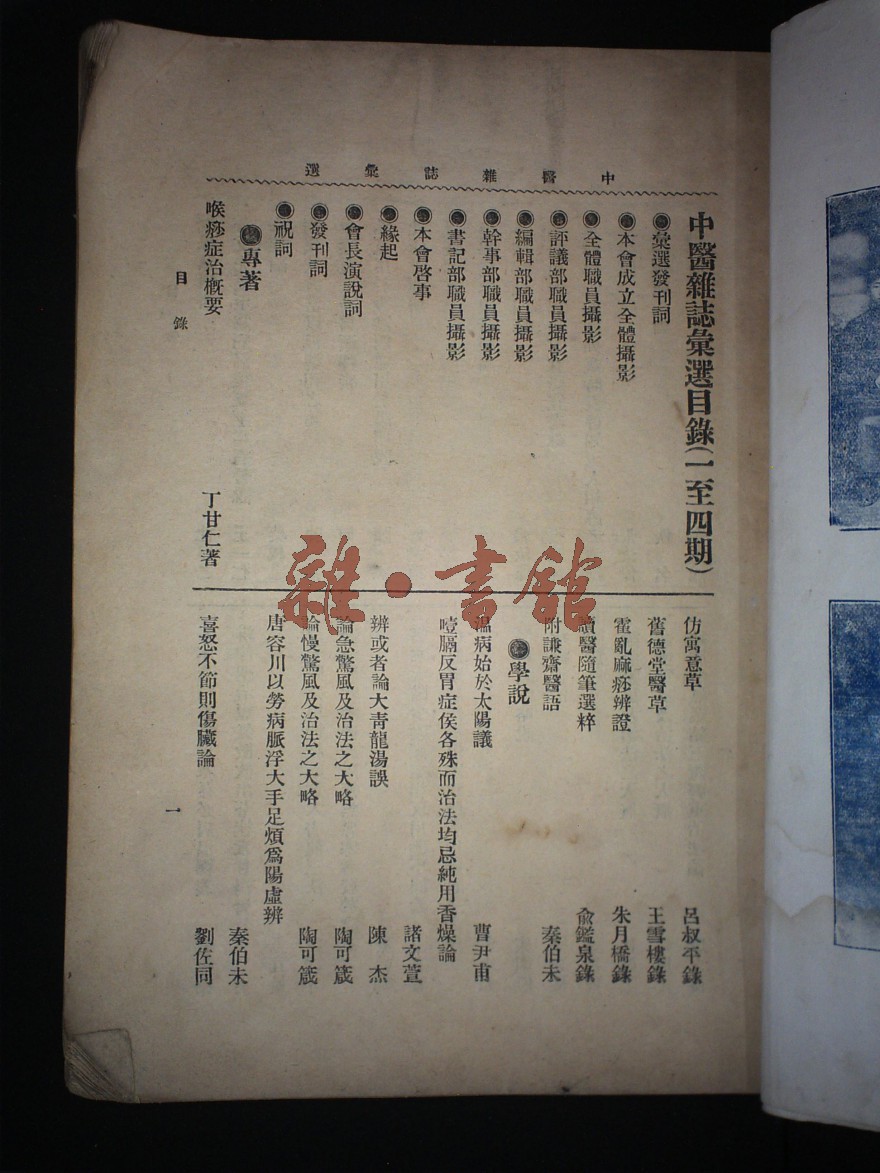 中醫雜誌彙選
中醫雜誌彙選目錄(一至四期)
●彙選發刊詞
●本會成立全體攝影
●全體職員攝影
●評議部職員攝影
●編輯部職員攝影
●幹事部職員攝影
●書記部職員攝影
●本會啓事
●緣起
●會長演說詞
●發刊詞
●祝詞
專著
喉痧症治概要 丁甘仁著
仿寓意草 呂叔平錄
舊德堂醫草 王雪樓錄
霍亂麻痧辨證 朱月橋錄
讀醫隨筆選粹 俞鑑泉錄
附謙齋醫語 秦伯未
學說
溫病始於太陽議 曹尹甫
噎膈反胃症侯各殊而治法均忌純用香燥論
諸文萱
辨或者論大青龍湯誤 陳杰
論急驚風及治法之大略 陶可箴
論慢驚風及治法之大略 陶可箴
唐容川以勞病脈浮大手足煩爲陽虛辨
秦伯未
喜怒不節則傷臟論 劉佐同
目錄
一
雜·書館